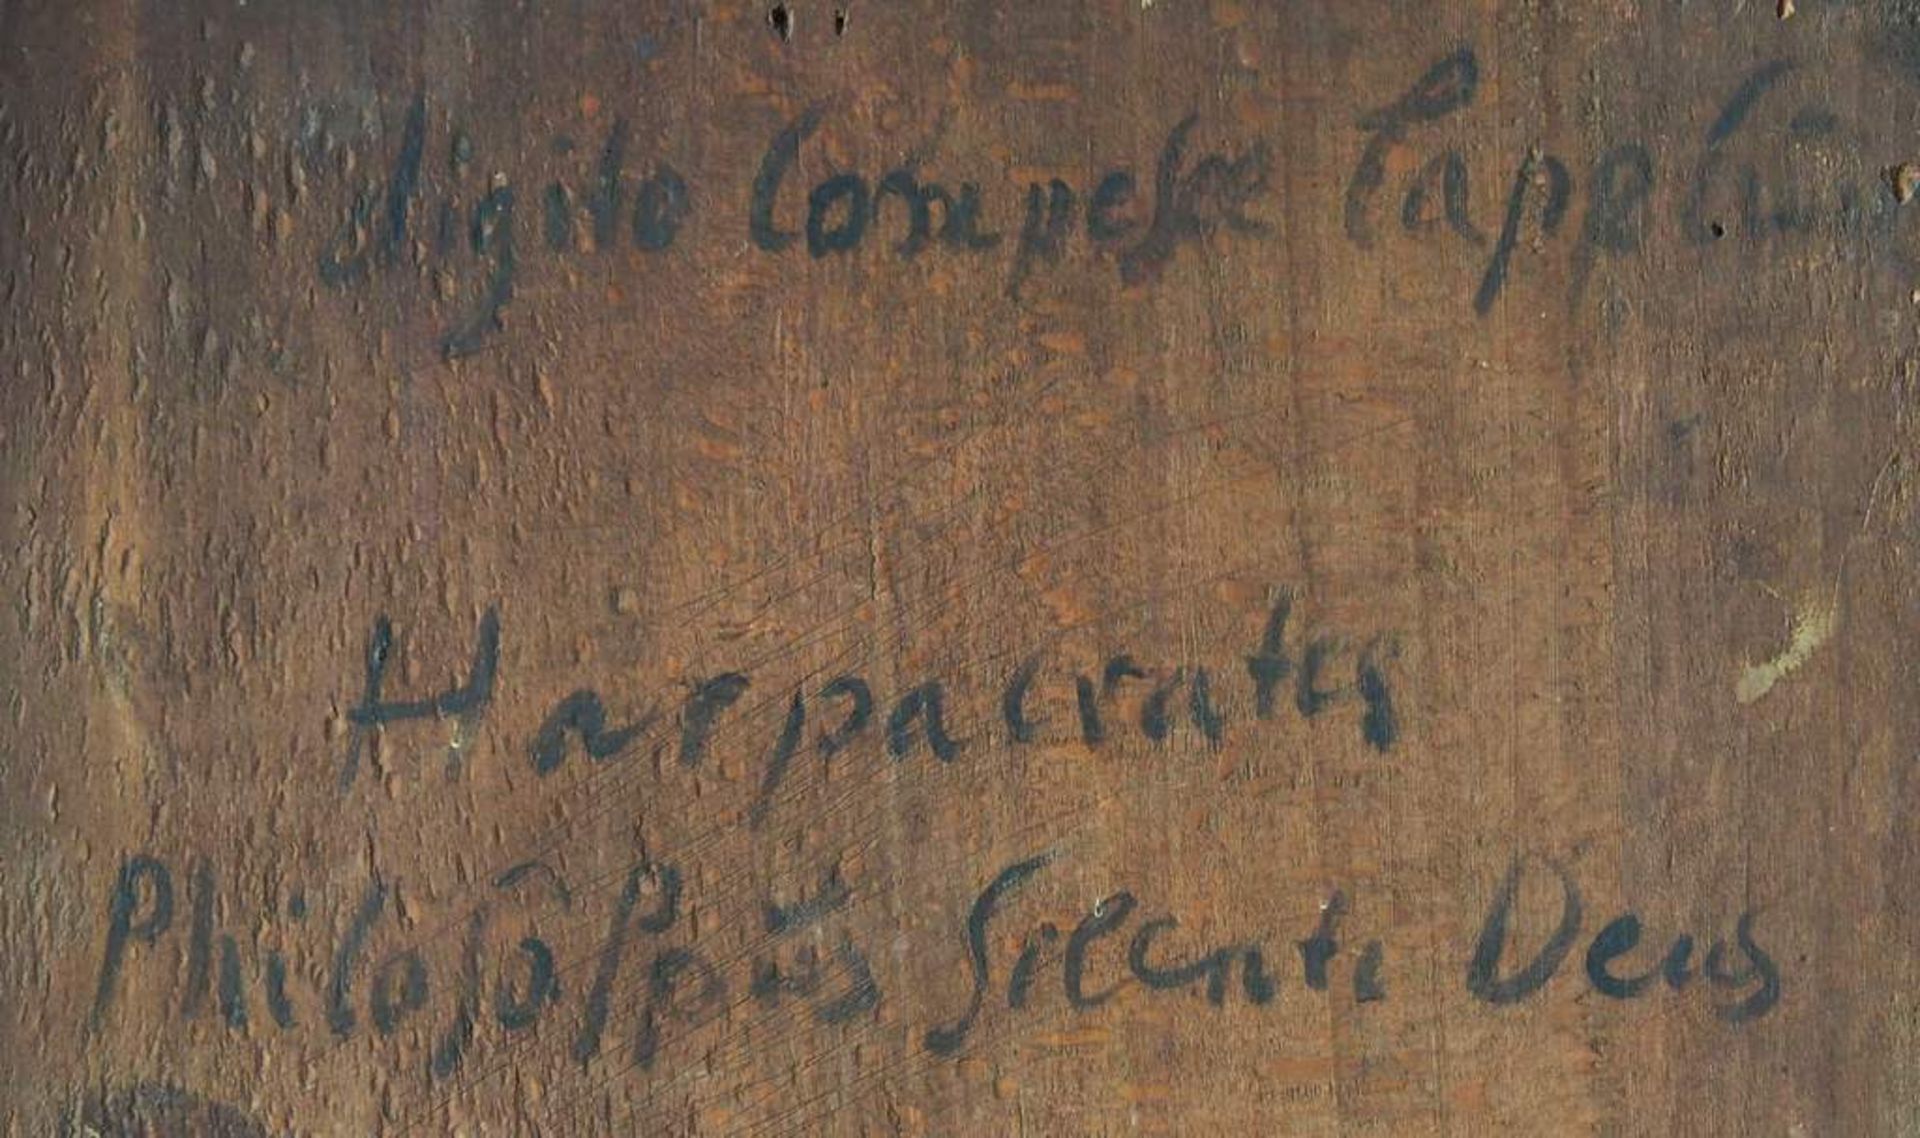 digito Compesce
Harpacrates
Philosôphûs Silenti Deus